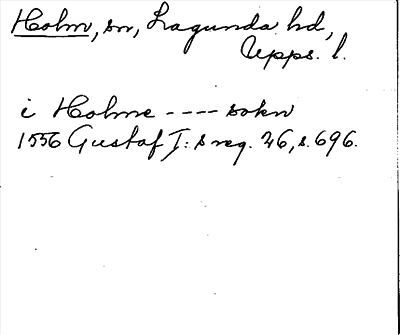 Holm, sn, Lagunda hd,
Upps. l.
i Holme ---- sokn
1556 Gustaf I:s reg. 26, s. 696.